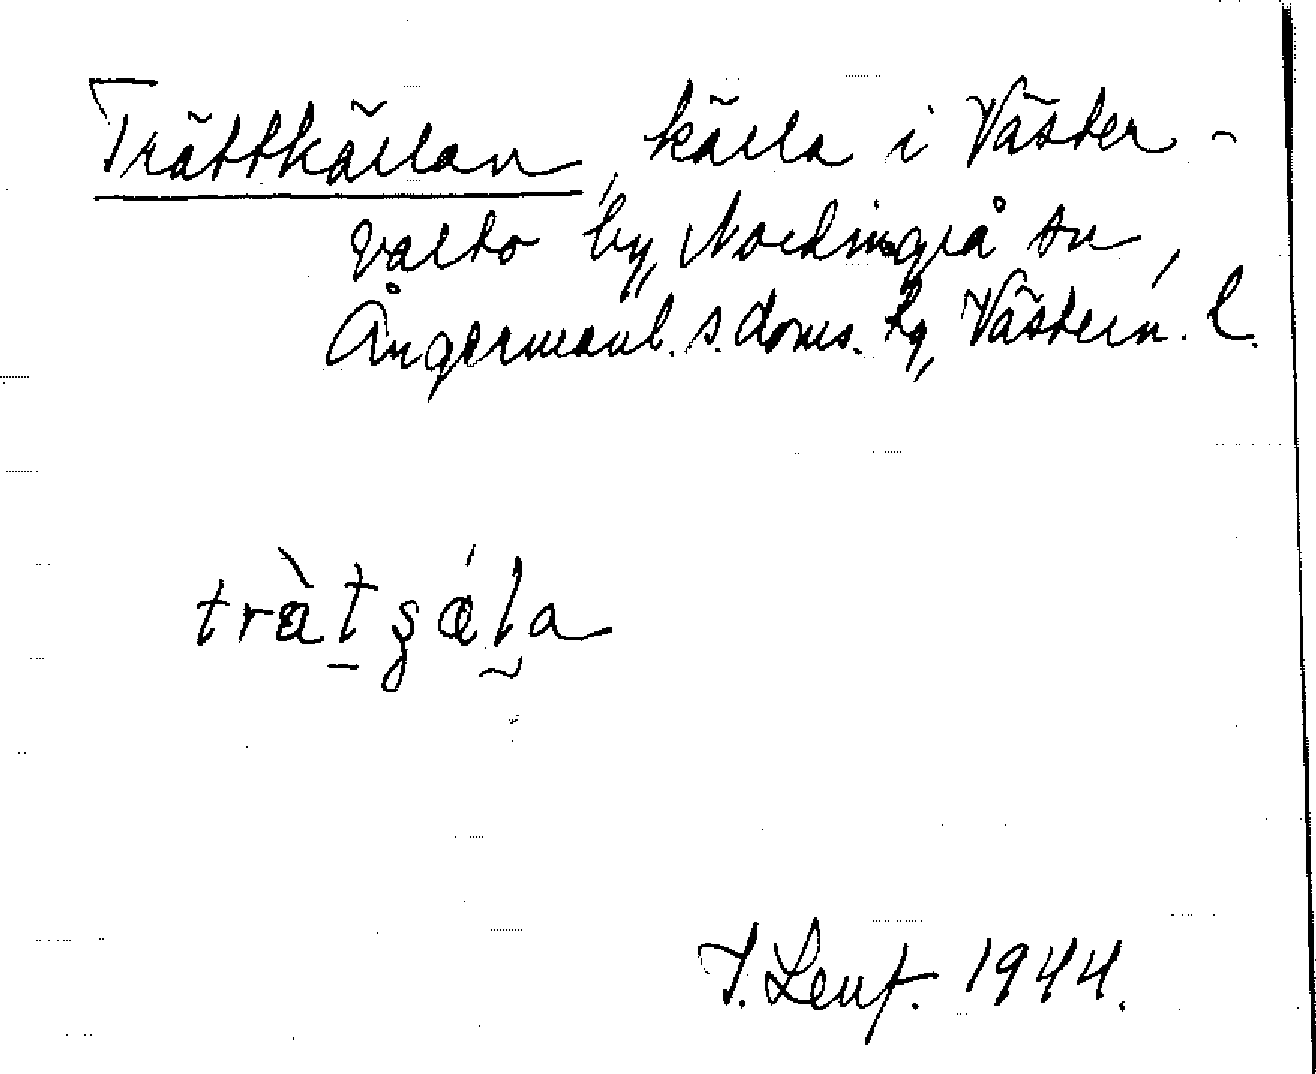 Trättkällan, källa i Väster-
valto by, Nordingrå sn,
Ångermanl. s. doms. tg, Västern. l.
træ̀t̠ʂǽl̰a